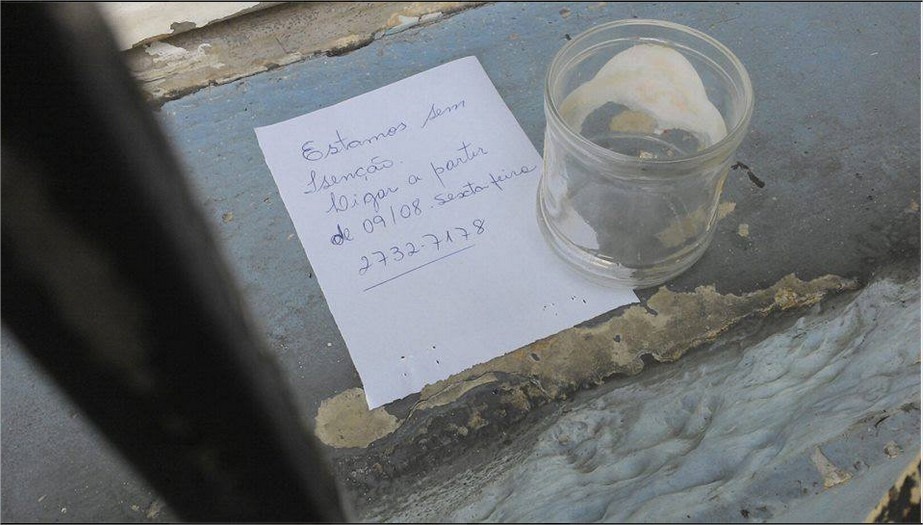 Estamos sem
Isenção.
Ligar a partir
de 09/08. sexta feira
2732-7178